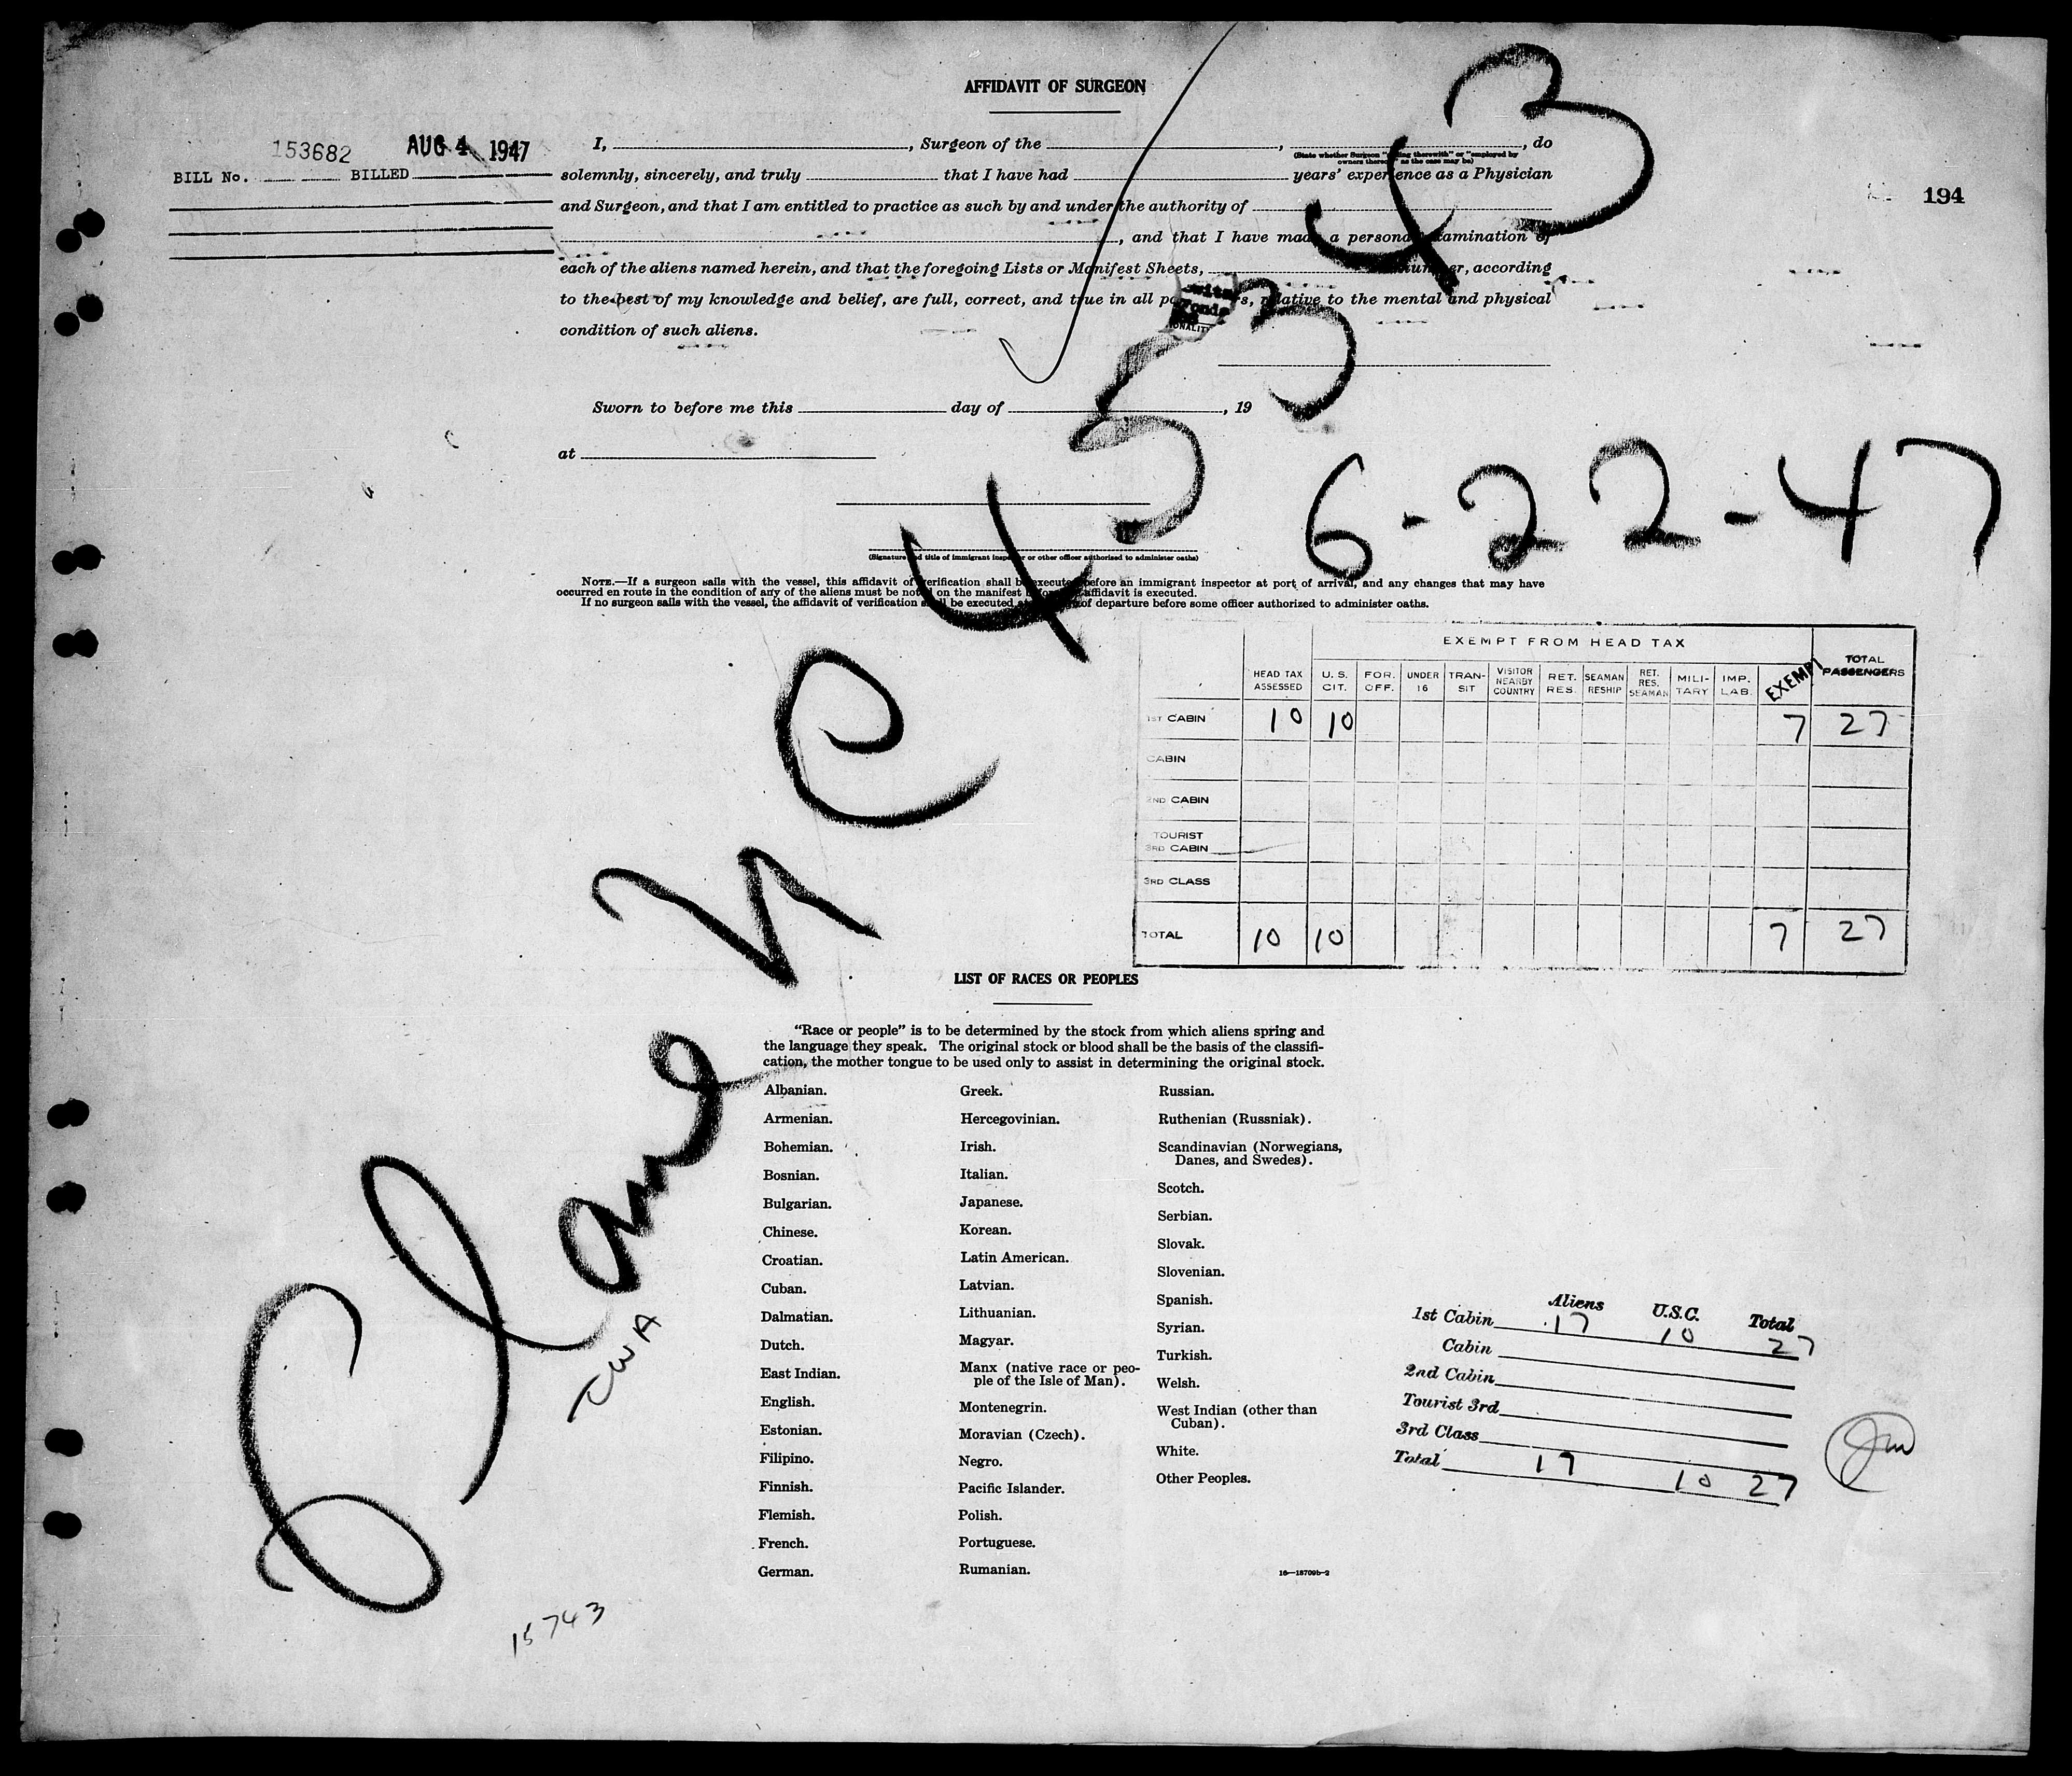 AFFIDAVIT OF SURGEON
153682 AUG 4 1947
BILL No. BILLED
194
I, , Surgeon of the , , do
(State whether Surgeon "sailing therewith" or "employed by
owners thereof," as the case may be)
solemnly, sincerely, and truly that I have had years' experience as a Physician
and Surgeon, and that I am entitled to practice as such by and under the authority of
, and that I have made a personal examination of
each of the aliens named herein, and that the foregoing Lists or Manifest Sheets, number, according
to the best of my knowledge and belief, are full, correct, and true in all s, relative to the mental and physical
condition of such aliens.
Sworn to before me this day of , 19
at
(Signature and title of immigrant inspector or other officer authorized to administer oaths)
NOTE.—If a surgeon sails with the vessel, this affidavit of verification shall be executed before an immigrant inspector at port of arrival, and any changes that may have
occurred en route in the condition of any of the aliens must be noted on the manifest before affidavit is executed.
If no surgeon sails with the vessel, the affidavit of verification shall be executed at of departure before some officer authorized to administer oaths.
Plane NC 45343
6-22-47
TWA
EXEMPT FROM HEAD TAX
HEAD TAX ASSESSED U.S. CIT. FOR. OFF. UNDER 16 TRAN-SIT VISITOR NEARBY COUNTRY RET. RES. SEAMAN RESHIP RET. RES. SEAMAN MILI-TARY IMP. LAB. EXEMPT TOTAL PASSENGERS
1ST CABIN 10 10 7 27
CABIN
2ND CABIN
TOURIST
3RD CABIN
3RD CLASS
TOTAL 10 10 7 27
LIST OF RACES OR PEOPLES
"Race or people" is to be determined by the stock from which aliens spring and
the language they speak. The original stock or blood shall be the basis of the classifi-
cation, the mother tongue to be used only to assist in determining the original stock.
Albanian.
Armenian.
Bohemian.
Bosnian.
Bulgarian.
Chinese.
Croatian.
Cuban.
Dalmatian.
Dutch.
East Indian.
English.
Estonian.
Filipino.
Finnish.
Flemish.
French.
German.
Greek.
Hercegovinian.
Irish.
Italian.
Japanese.
Korean.
Latin American.
Latvian.
Lithuanian.
Magyar.
Manx (native race or peo-
ple of the Isle of Man).
Montenegrin.
Moravian (Czech).
Negro.
Pacific Islander.
Polish.
Portuguese.
Rumanian.
Russian.
Ruthenian (Russniak).
Scandinavian (Norwegians,
Danes, and Swedes).
Scotch.
Serbian.
Slovak.
Slovenian.
Spanish.
Syrian.
Turkish.
Welsh.
West Indian (other than
Cuban).
White.
Other Peoples.
16—18709b-2
Aliens U.S.C. Total
1st Cabin 17 10 27
Cabin
2nd Cabin
Tourist 3rd
3rd Class
Total 17 10 27
15743